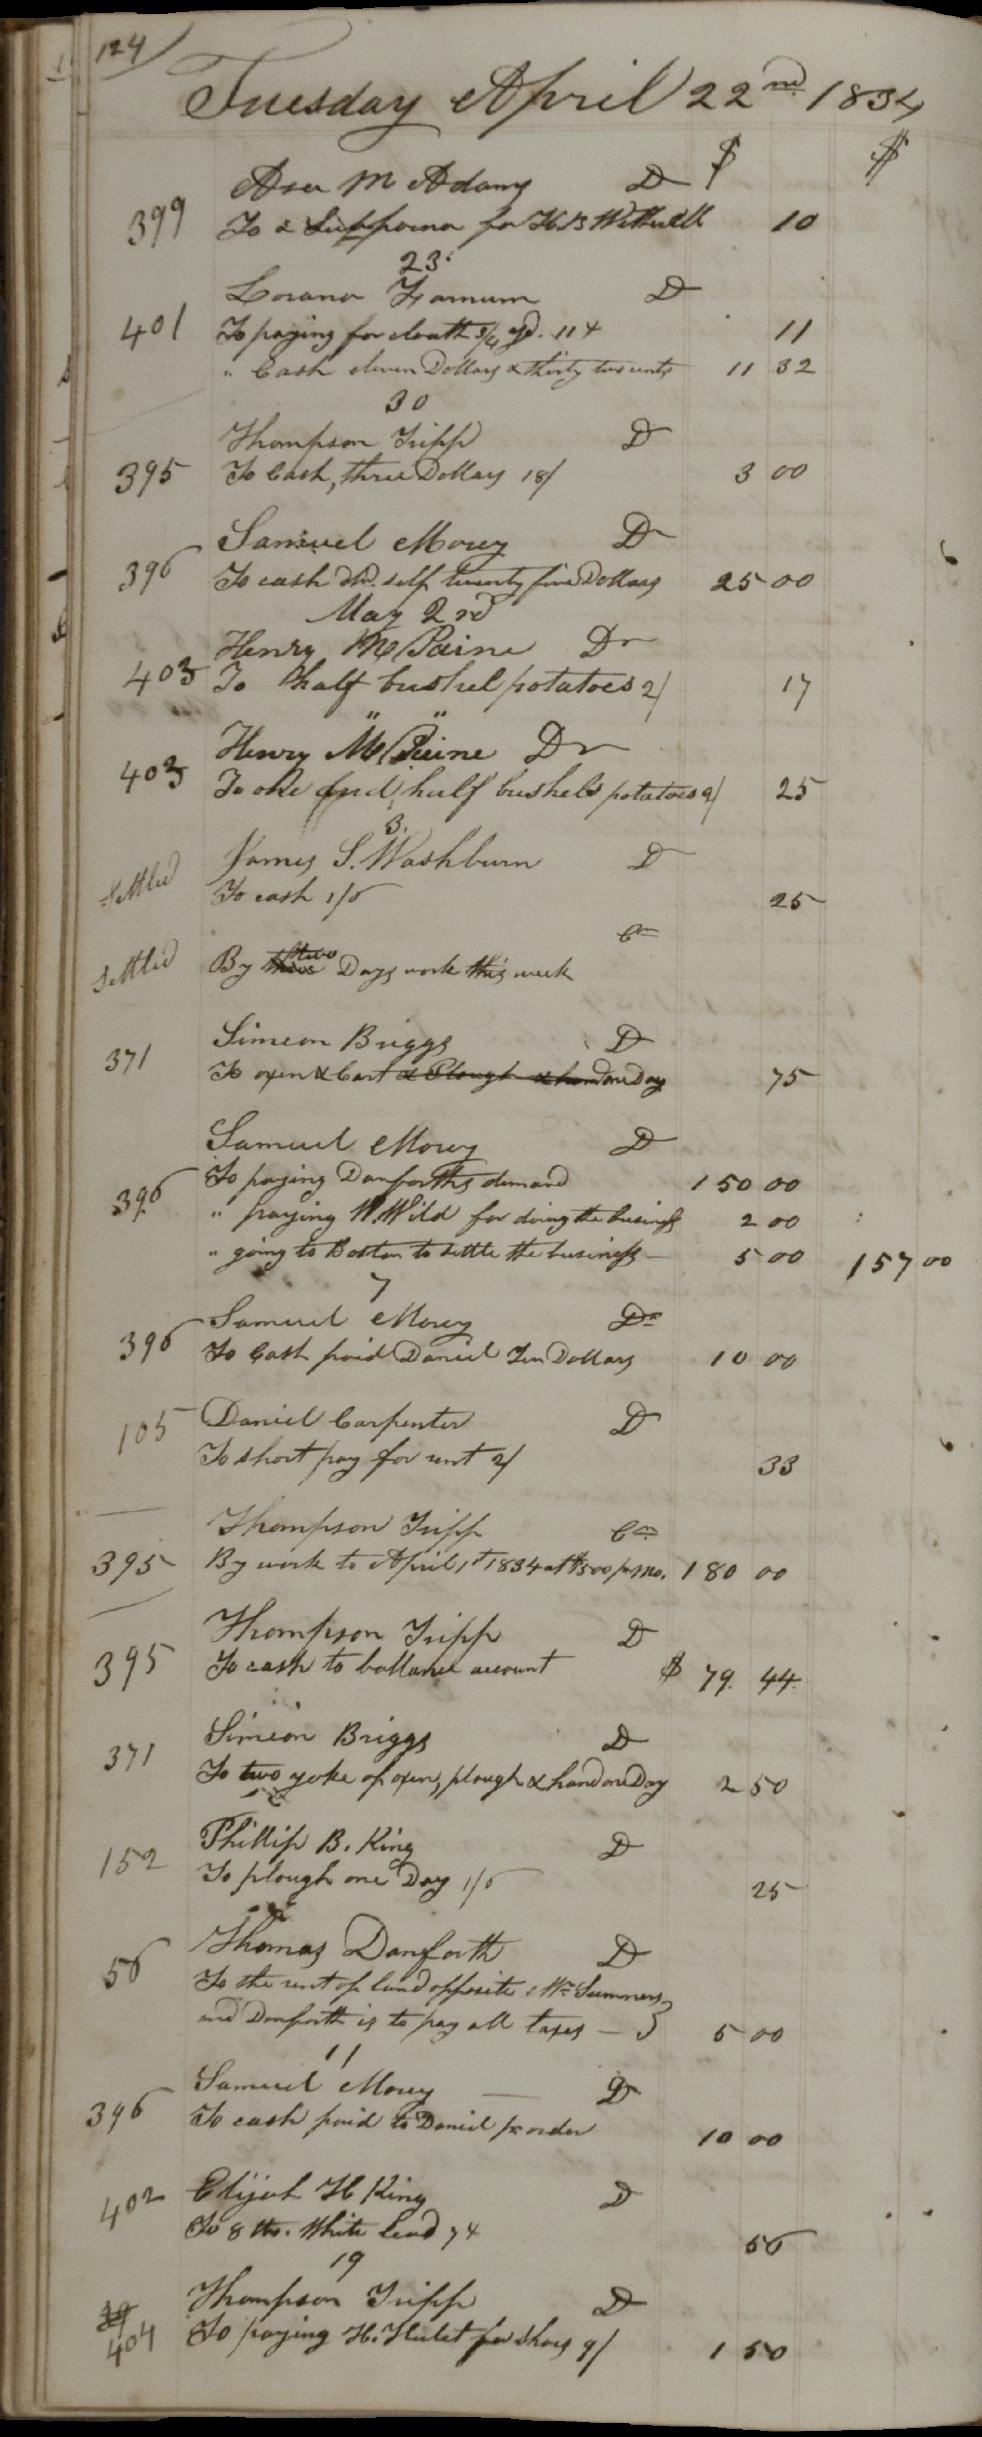 124
Tuesday April 22nd 1834
$ $
Asa M Adams D
399 To a Suppoena for H B Wetherell 10
23.
Lorana Farnum D
401 To paying for cloath 3/4 yd. 11 11
" Cash eleven Dollars & thirty two cents 11 32
30
Thompson Tripp D
395 To Cash, three Dollars 18/ 3 00
Samuel Mowry D
396 To cash self twenty five Dollars 25 00
May 2nd
Henry M Paine Dr
403 To half bushel potatoes 2/ 17
" "
Henry M Paine Dr
403 To one and half bushels potatoes 25
3.
James S. Washburn D
Settled To cash 1/6 25
Cr
Settled By three two Days work this week
Simeon Briggs D
371 To oxen & Cart & Plough & hand one Day 75
Samuel Mowry D
396 To paying Danforths demand 150 00
" paying W. Wild for doing the business 2 00
" going to Boston to settle the business — 5 00 157 00
7
Samuel Mowry Dr
396 To Cash paid Daniel Ten Dollars 10 00
Daniel Carpenter D
105 To short pay for rent 2/ 33
Thompson Tripp Cr
395 By work to April 1st 1834 at $500 per mo. 180 00
Thompson Tripp D
395 To cash to ballance account $ 79. 44
Simeon Briggs D
371 To two yoke of oxen, plough & hand one Day 2 50
Phillip B. King D
152 To plough one Day 1/6 25
Thomas Danforth D
56 To the rent of land opposite Wm Sumners
and Danforth is to pay all taxes — } 5 00
11
Samuel Mowry — D
396 To cash paid to Daniel pr order 10 00
Elijah H King D
402 To 8 lbs. White Lead 7 56
19
Thompson Tripp D
404 To paying H. Hulet for shoes 9/ 1 50